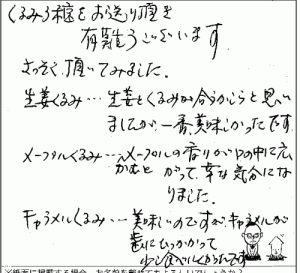 くるみ3種をお送り頂き
有難うございます
さっそく頂いてみました。
生姜くるみ…生姜とくるみが合うかしらと思い
ましたが一番美味しかったです
メープルくるみ…メープルの香りが口の中に広
がって幸な気分にな
りました。
キャラメルくるみ…美味しいのですが、キャラメルが
歯にひっかかって
少し食べにくかったです
※紙面に掲載する場合、お名前を載せてもよろしいでしょうか?